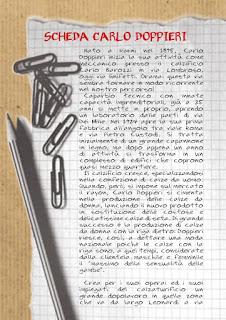 SCHEDA CARLO DOPPIERI
Nato a Rimini nel 1895, Carlo
Doppieri inizia la sua attività come
meccanico presso il calzificio
Carlo Barozzi in via Lombroso,
oggi via Gulfetti. Orama: questa via
sembra tornare in modo ricorrente
nel nostro percorso!
Caparbio tecnico con innate
capacità imprenditoriali, già a 25
anni si mette in proprio, aprendo
un laboratorio dalle parti di via
Dei Mille. Nel 1924 apre la sua prima
fabbrica all'angolo tra viale Roma
e via Pietro Custodi. Si tratta
inizialmente di un grande capannone
in legno, ma dopo appena un anno
di attività si trasforma in un
complesso di edifici che coprono
quasi mezzo quartiere.
Il calzificio cresce, specializzandosi
nella confezione di calze da uomo.
Quando, però, si impone sul mercato
il rayon, Carlo Doppieri si cimenta
nella produzione delle calze da
donna, lanciando il nuovo prodotto
in sostituzione delle costose e
delicatissime calze di seta. Di grande
successo è la produzione di calze
da donna con la riga dietro. Doppieri
riesce, così, a dettare una moda
nazionale poiché le calze con la
riga sono, a quei tempi, considerate
dalla clientela maschile e femminile
il "massimo della sensualità delle
gambe".
Crea per i suoi operai ed i suoi
impiegati del calzaturificio un
grande dopolavoro in quella zona
che va da largo Leonardi a via